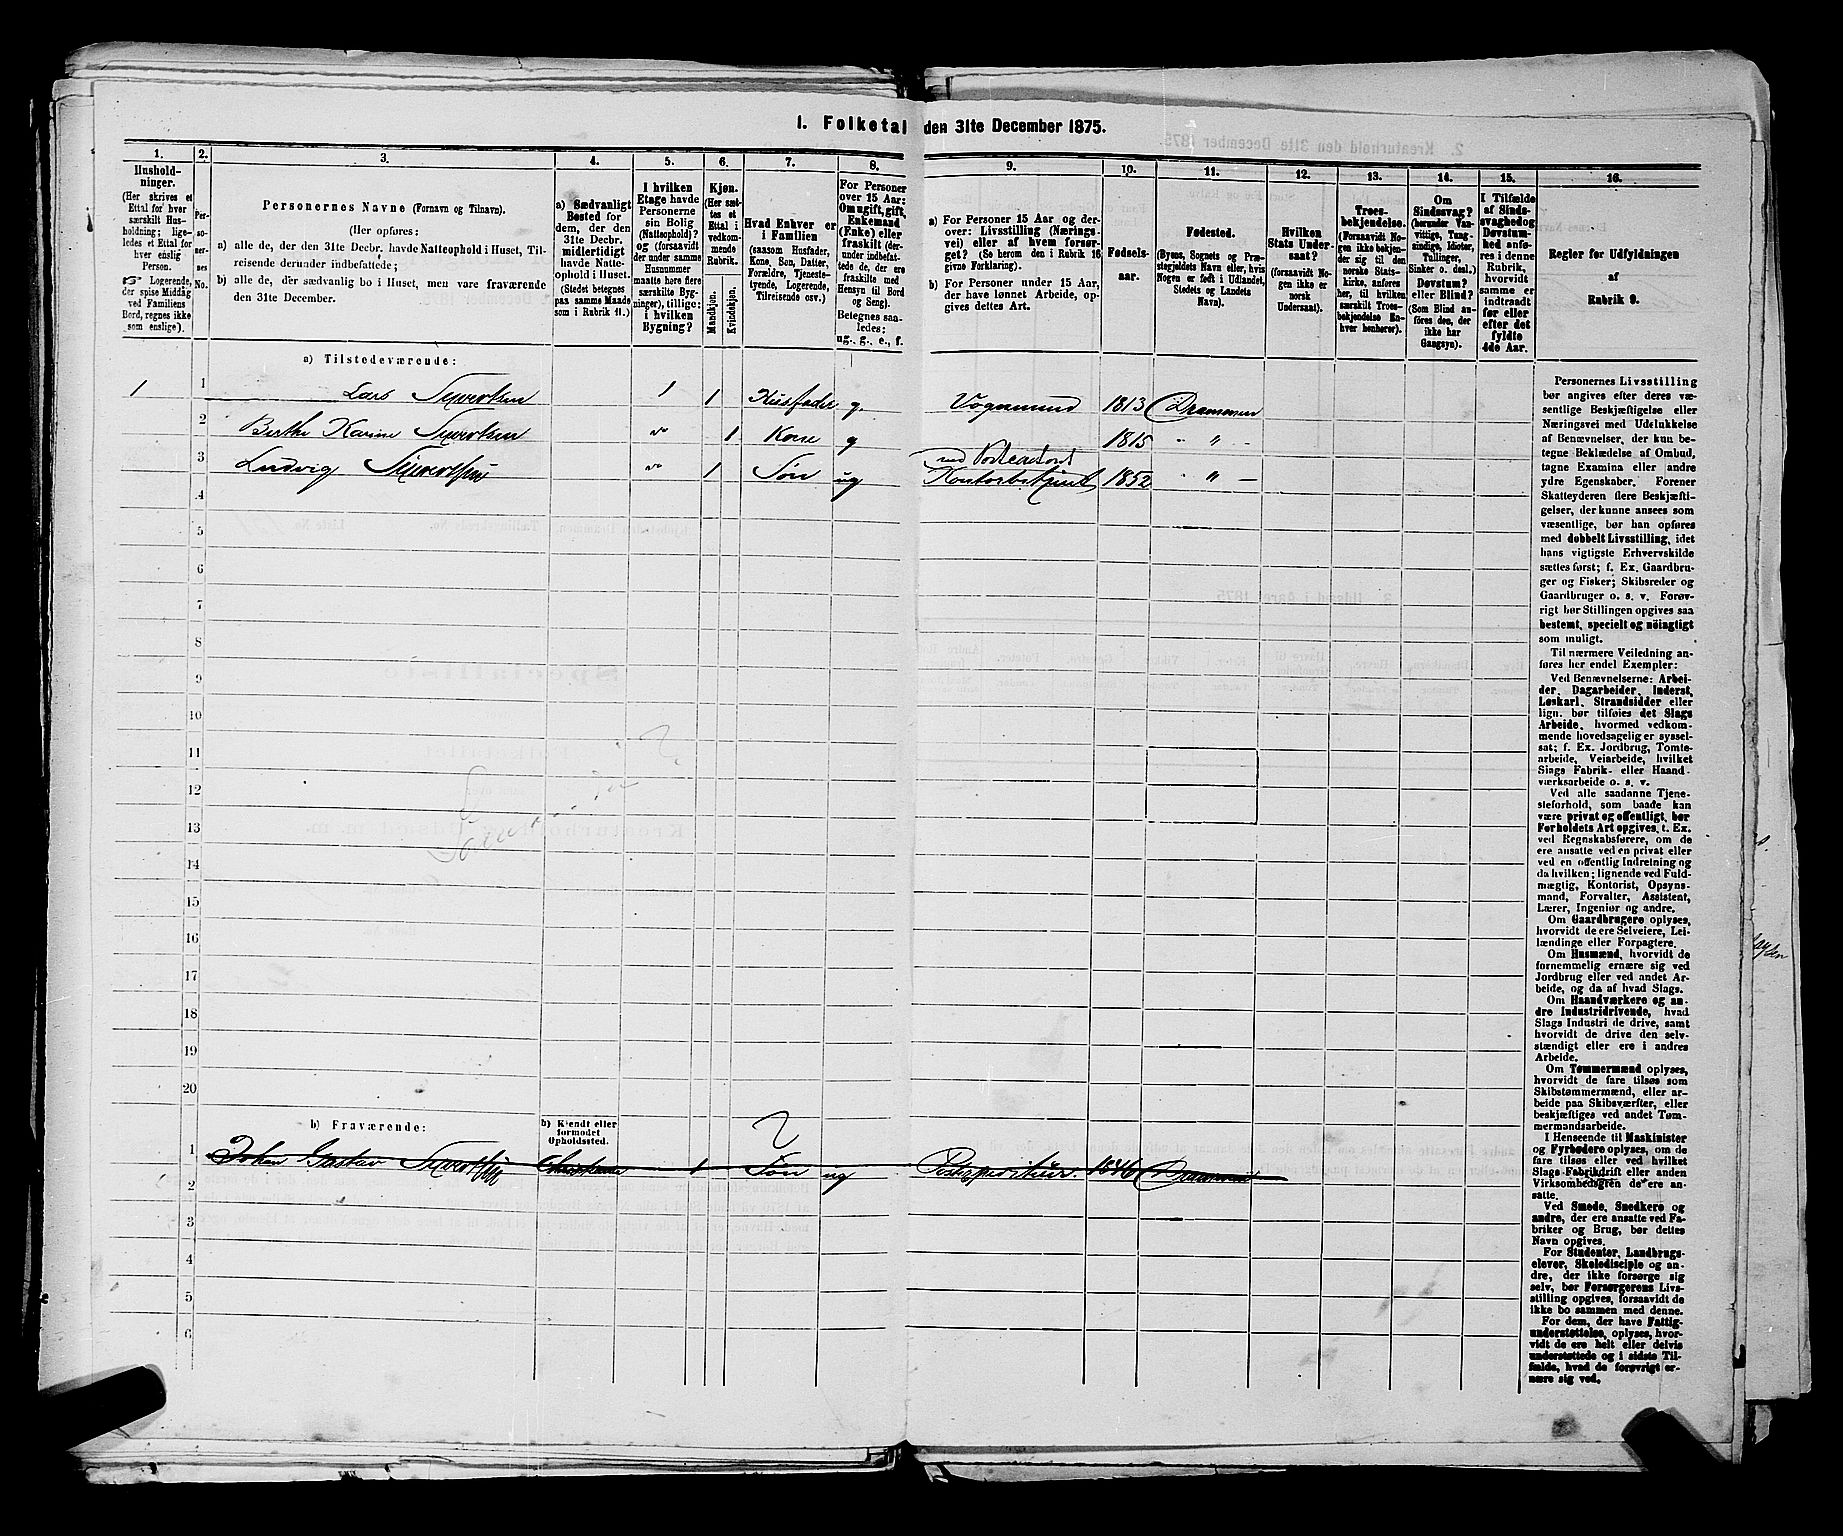 1. Folketal den 31te December 1875.
1.
Hushold-
ninger.
(Her skrives et
Ettal for hver
særskilt Hus-
holdning; lige-
ledes et Ettal for
hver enslig
Person.
☞ Logerende,
der spise Middag
ved Familiens
Bord, regnes ikke
som enslige).
2.
Per-
so-
ner-
nes
No.
3.
Personernes Navne (Fornavn og Tilnavn).
(Her opføres:
a) alle de, der den 31te Decbr. havde Natteophold i Huset, Til-
reisende derunder indbefattede;
b) alle de, der sædvanlig bo i Huset, men vare fraværende
den 31te December.
4.
a) Sædvanligt
Bosted for
dem, der den
31te Decbr.
midlertidigt
havde Natte-
ophold i Huset.
(Stedet betegnes
paa samme Maade
som i Rubrik 11.)
5.
I hvilken
Etage havde
Personerne
sin Bolig
(Natteophold)?
og (forsaavidt
der under samme
Husnummer
maatte høre flere
særskilte Byg-
ninger), tillige:
i hvilken
Bygning?
6.
Kjøn.
(Her sæt-
tes et
Ettal i
vedkom-
mende
Rubrik.
Mandkjøn.
Kvindekjøn.
7.
Hvad Enhver er
i Familien
(saasom Husfader,
Kone, Søn, Datter,
Forældre, Tjeneste-
tyende, Logerende,
Tilreisende osv.)
8.
For Personer
over 15 Aar:
Om ugift, gift,
Enkemand
(Enke) eller
fraskilt (der-
under indbefat-
tede de, der ere
fraskilte med
Hensyn til Bord
og Seng).
Betegnes saa-
ledes:
ug., g., e., f.
9.
a) For Personer 15 Aar og der-
over: Livsstilling (Nærings-
vei) eller af hvem forsør-
get? (Se herom den i Rubrik 16
givne Forklaring).
b) For Personer under 15 Aar,
der have lønnet Arbeide, op-
gives dettes Art.
10.
Fødsels-
aar.
11.
Fødested.
(Byens, Sognets og Præ-
stegjeldets Navn eller, hvis
Nogen er født i Udlandet,
Stedets og Landets
Navn).
12.
Hvilken
Stats Under-
saat?
(forsaavidt No-
gen ikke er
norsk
Undersaat).
13.
Troes-
bekjendelse.
(Forsaavidt No-
gen ikke bekjen-
der sig til den
norske Stats-
kirke, anføres
her, til hvilken
særskilt Troes-
bekjendelse En-
hver henhører).
14.
Om
Sindssvag?
(herunder Van-
vittige, Tung-
sindige, Idioter,
Tullinger,
Sinker o. desl.)
Døvstum?
eller Blind?
(Som Blind an-
føres den, der
ikke har
Gangsyn).
15.
I Tilfælde
af Sinds-
svaghed og
Døvstum-
hed anfø-
res i denne
Rubrik,
hvorvidt
samme er
indtraadt
før eller
efter det
fyldte
4de Aar.
16.
Regler for Udfyldningen
af
Rubrik 9.
a) Tilstedeværende:
1 1 Lars Syvertsen 1 1 Husfader g. Vognmand 1813 Drammen
2 Berthe Karine Syvertsen 1 Kone g 1815 - " -
ved
3 Ludvig Syvertsen 1 Søn ug Kontorbetjent 1852 - " -
4
5
6
7
8
9
10
11
12
13
14
15
16
17
18
19
20
b) Fraværende:
b) Kjendt eller
formodet
Opholdssted.
1 Johan Gustav Syvertsen Christiania 1 Søn ug 1846 Drammen
2
3
4
5
6
Personernes Livsstilling
bør angives efter deres væ-
sentlige Beskjæftigelse eller
Næringsvei med Udelukkelse
af Benævnelser, der kun be-
tegne Beklædelse af Ombud,
tagne Examina eller andre
ydre Egenskaber. Forener
Skatteyderen flere Beskjæfti-
gelser, der kunne ansees som
væsentlige, bør han opføres
med dobbelt Livsstilling, idet
hans vigtigste Erhvervskilde
sættes først; f. Ex. Gaardbru-
ger og Fisker; Skibsreder og
Gaardbruger o. s. v. Forøv-
rigt bør Stillingen opgives saa
bestemt, specielt og nöiagtigt
som muligt.
Til nærmere Veiledning an-
føres her endel Exempler:
Ved Benævnelserne: Arbei-
der, Dagarbeider, Inderst,
Løskarl, Strandsidder eller
lign. bør tilføies det Slags
Arbeide, hvormed vedkom-
mende hovedsagelig er syssel-
sat; f. Ex. Jordbrug, Tomte-
arbeide, Veiarbeide, hvilket
Slags Fabrik- eller Haand-
værksarbeide o. s. v.
Ved alle saadanne Tjene-
steforhold, som baade kan
være privat og offentligt, bør
Forholdets Art opgives, t. Ex.
ved Regnskabsførere, om de
ere ansatte ved en privat eller
ved en offentlig Indretning og
da hvilken; lignende ved Fuld-
mægtig, Kontorist, Opsyns-
mand, Forvalter, Assistent,
Lærer, Ingeniør og andre.
Om Gaardbrugere oplyses,
hvorvidt de ere Selveiere, Lei-
lændinge eller Forpagtere.
Om Husmænd, hvorvidt de
fornemmelig ernære sig ved
Jordbrug eller ved andet Ar-
beide, og da af hvad Slags.
Om Haandværkere og an-
dre Industridrivende, hvad
Slags Industri de drive, samt
hvorvidt de drive den selv-
stændigt eller ere i andres
Arbeide.
Om Tømmermænd oplyses,
hvorvidt de fare tilsøs som
Skibstømmermænd, eller ar-
beide paa Skibsværfter, eller
beskjæftiges ved andet Tøm-
mermandsarbeide.
I Henseende til Maskinister
og Fyrbødere oplyses, om de
fare tilsøs eller ved hvilket
Slags Fabrikdrift eller anden
Virksomhedsgren de ere an-
satte.
Ved Smede, Snedkere og
andre, der ere ansatte ved Fa-
briker og Brug, bør dettes
Navn opgives.
For Studenter, Landbrugs-
elever, Skoledisciple og an-
dre, der ikke forsørge sig
selv, bør Forsørgerens Livs-
stilling opgives, forsaavidt de
ikke bo sammen med denne.
For dem, der have Fattig-
understøttelse, oplyses, hvor-
vidt de ere helt eller delvis
understøttede og i sidste Til-
fælde, hvad de forøvrigt er-
nære sig ved.